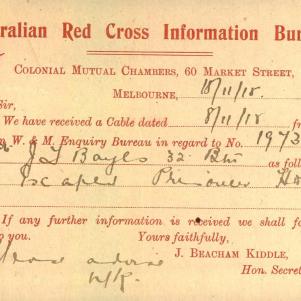 ralian Red Cross Information Bur
COLONIAL MUTUAL CHAMBERS, 60 MARKET STREET,
MELBOURNE, 18/11/18.
Sir,
We have received a Cable dated 8/11/18 fr
m W. & M. Enquiry Bureau in regard to No. 1973
J L Bayles 32 Btn as follo
Escaped Prisoner Ho
If any further information is received we shall fo
to you.
Yours faithfully,
J. BEACHAM KIDDLE,
Hon. Secre
Please advise
N/K.